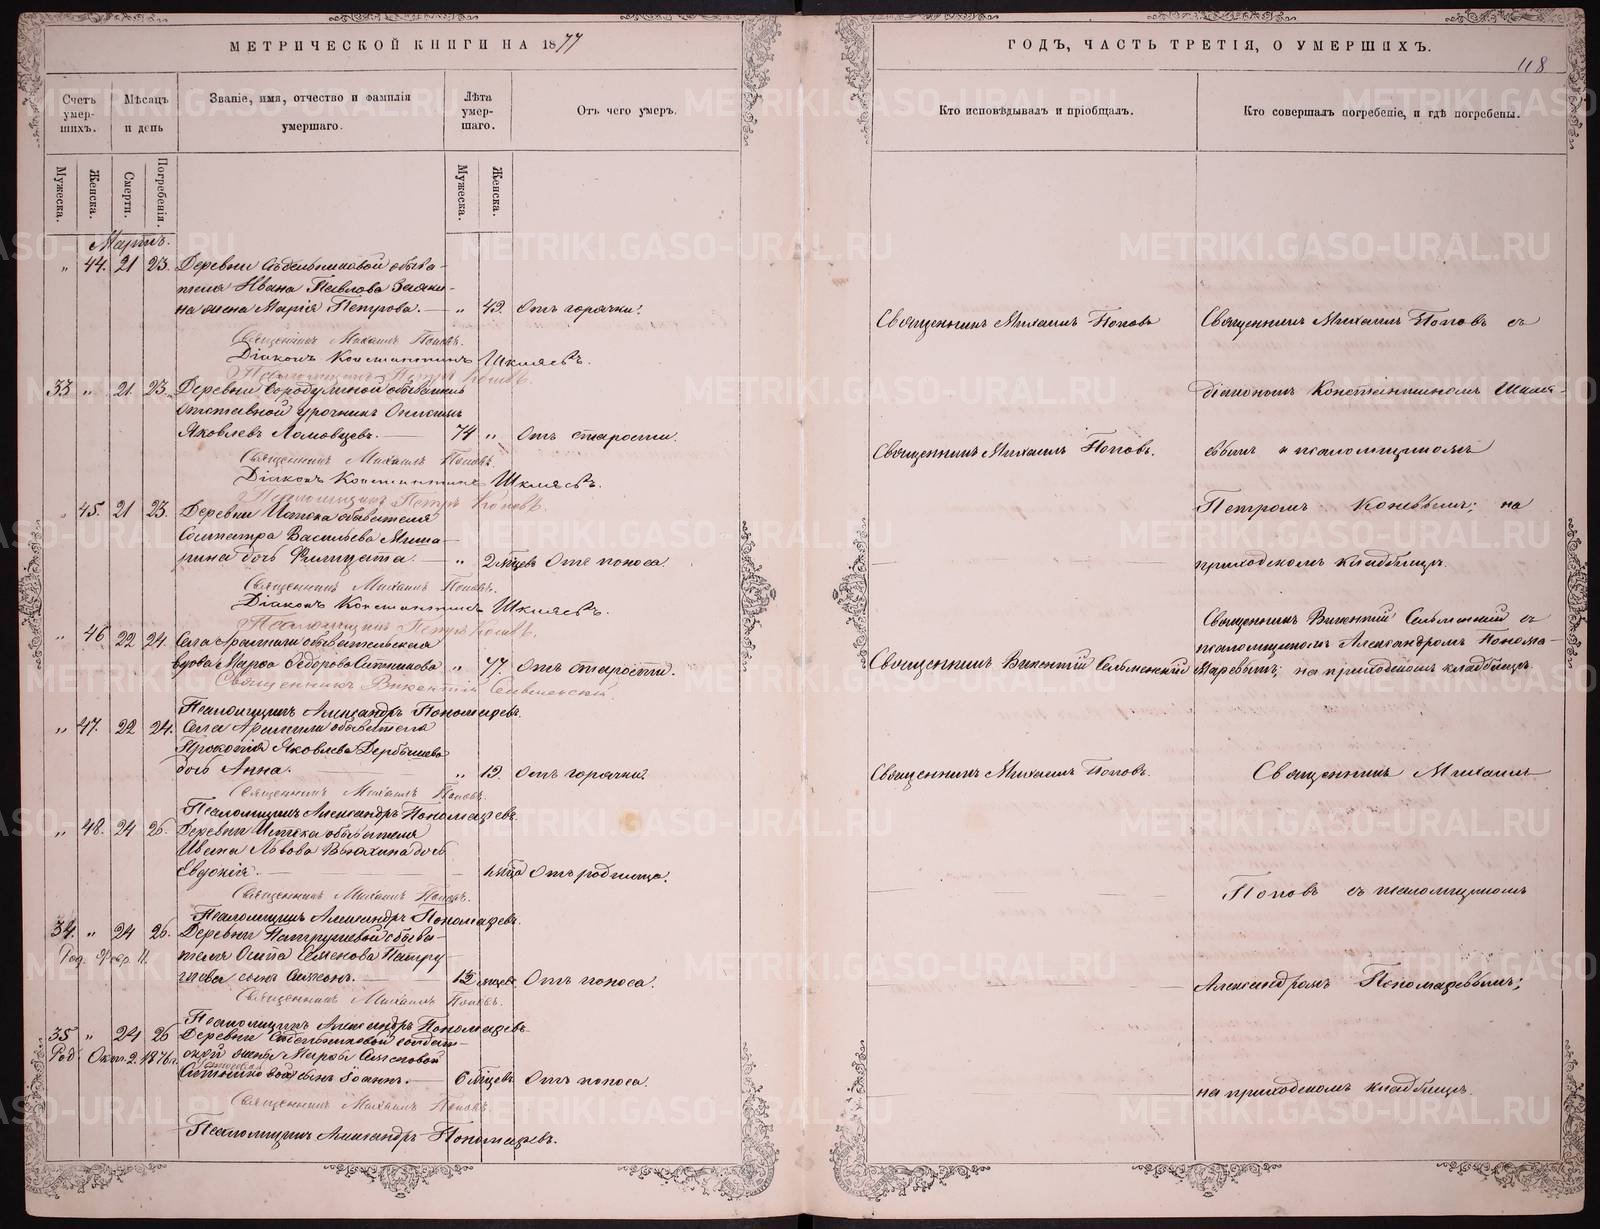 МЕТРИЧЕСКОЙ КНИГИ НА 1877
Счетъ умер-шихъ.
Мѣсяцъ и день
Званіе, имя, отчество и фамилія умершаго.
Лѣта умер-шаго.
Отъ чего умеръ.
Мужеска.
Женска.
Смерти.
Погребенія.
Мужеска.
Женска.
Мартъ.
„ 44. 21 23. Деревни обыва-
теля Ивана Павлова
на жена Марія Петрова. „ 42. Отъ горячки.
Священникъ Михаилъ Поповъ.
Діаконъ Константинъ Шкляевъ.
Псаломщикъ Петръ
33 „ 21. 23. Деревни
отставной урочникъ
Яковлевъ Ломовцевъ. 74 „ Отъ старости.
Священникъ Михаилъ Поповъ.
Діаконъ Константинъ Шкляевъ.
Псаломщикъ Петръ
45. 21 23. Деревни Истока обывателя
Сосипатра Васильева
дочь Филицата. „ 2 мѣцевъ Отъ поноса.
Священникъ Михаилъ Поповъ.
Діаконъ Константинъ Шкляевъ.
Псаломщикъ Петръ
„ 46 22 24. Села Арамили обывательская
вдова Марѳа Ѳедорова Ситникова „ 77. Отъ старости.
Священникъ Викентій Сельменскій
Псаломщикъ Александръ Пономаревъ.
„ 47. 22 24. Села Арамили обывателя
Прокопія Яковлева Дербышева
дочь Анна. „ 12. Отъ горячки.
Священникъ Михаилъ Поповъ.
Псаломщикъ Александръ Пономаревъ.
„ 48. 24 26. Деревни Истока обывателя
Ивана Львова Вьюхина дочь
Евдокія. Отъ родимца.
Священникъ Михаилъ Поповъ.
Псаломщикъ Александръ Пономаревъ.
34. „ 24 26. Деревни Патрушевой обыва-
Род. Февр. 11. теля Осипа Семенова Патру-
шева сынъ Симеонъ. Отъ поноса.
Священникъ Михаилъ Поповъ.
Псаломщикъ Александръ Пономаревъ.
35 „ 24 26 Деревни солдат-
Род. Окт. 2. 1876 г. ской жены Марѳы
сынъ Іоаннъ. 6 мѣцевъ Отъ поноса.
Священникъ Михаилъ Поповъ.
Псаломщикъ Александръ Пономаревъ.
ГОДЪ, ЧАСТЬ ТРЕТІЯ, О УМЕРШИХЪ.
118
Кто исповѣдывалъ и пріобщалъ.
Кто совершалъ погребеніе, и гдѣ погребены.
Священникъ Михаилъ Поповъ
Священникъ Михаилъ Поповъ съ
діакономъ Константиномъ Шкля-
Священникъ Михаилъ Поповъ.
евымъ и псаломщикомъ
Петромъ на
приходскомъ кладбищѣ.
Священникъ Викентій Сельменскій съ
псаломщикомъ Александромъ Понома-
Священникъ Викентій Сельменскій
ревымъ; на приходскомъ кладбищѣ.
Священникъ Михаилъ Поповъ.
Священникъ Михаилъ
Поповъ съ псаломщикомъ
Александромъ Пономаревымъ;
на приходскомъ кладбищѣ.
METRIKI.GASO-URAL.RU